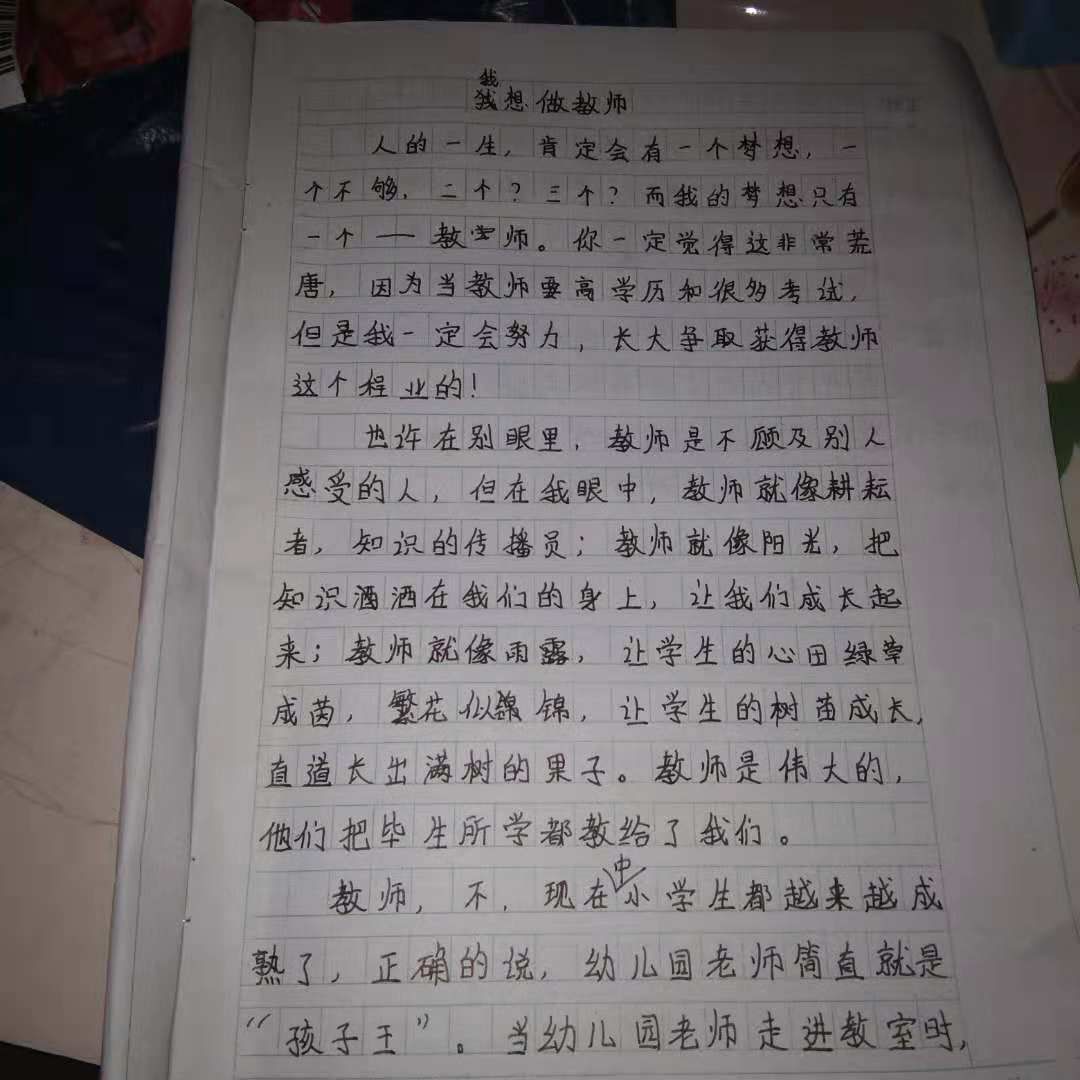 我想做教师
人的一生，肯定会有一个梦想，一
个不够，二个？三个？而我的梦想只有
一个——教师。你一定觉得这非常荒
唐，因为当教师要高学历和很多考试，
但是我一定会努力，长大争取获得教师
这个程业的！
也许在别眼里，教师是不顾及别人
感受的人，但在我眼中，教师就像耕耘
者，知识的传播员；教师就像阳光，把
知识洒洒在我们的身上，让我们成长起
来；教师就像雨露，让学生的心田绿草
成茵，繁花似锦，让学生的树苗成长，
直道长出满树的果子。教师是伟大的，
他们把毕生所学都教给了我们。
教师，不，现在中小学生都越来越成
熟了，正确的说，幼儿园老师简直就是
“孩子王”。当幼儿园老师走进教室时，